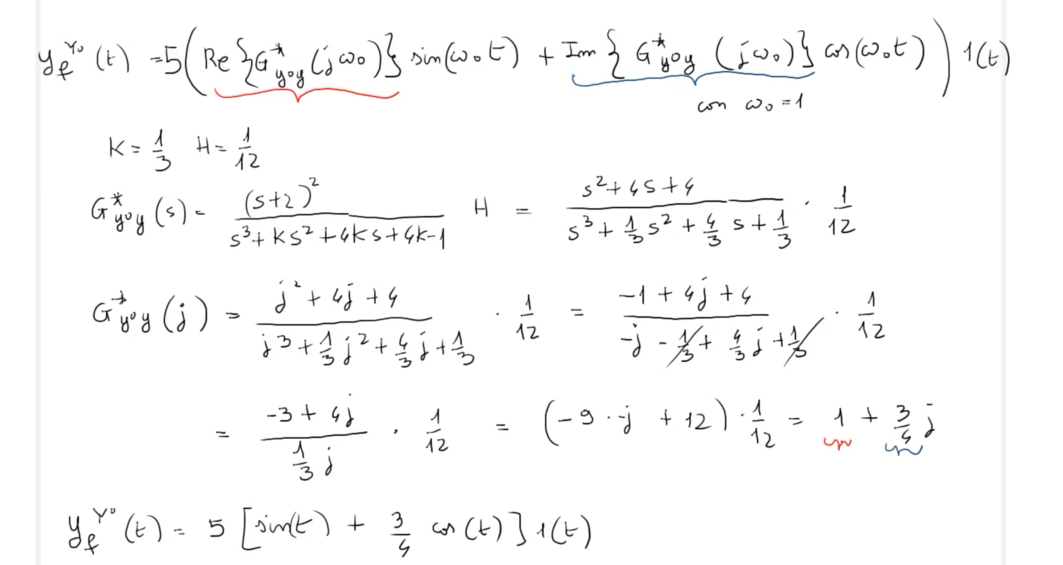 y_f^{Y°}(t) = 5( Re{G*_{y°y}(jω₀)} sin(ω₀t) + Im{G*_{y°y}(jω₀)} cos(ω₀t) ) 1(t)
con ω₀ = 1
K = 1/3 H = 1/12
G*_{y°y}(s) = (s+2)² / (s³ + Ks² + 4Ks + 4K-1) H = (s² + 4s + 4) / (s³ + 1/3 s² + 4/3 s + 1/3) · 1/12
G*_{y°y}(j) = (j² + 4j + 4) / (j³ + 1/3 j² + 4/3 j + 1/3) · 1/12 = (-1 + 4j + 4) / (-j - 1/3 + 4/3 j + 1/3) · 1/12
= (-3 + 4j) / (1/3 j) · 1/12 = (-9 · -j + 12) · 1/12 = 1 + 3/4 j
y_f^{Y°}(t) = 5 [sin(t) + 3/4 cos(t)] 1(t)